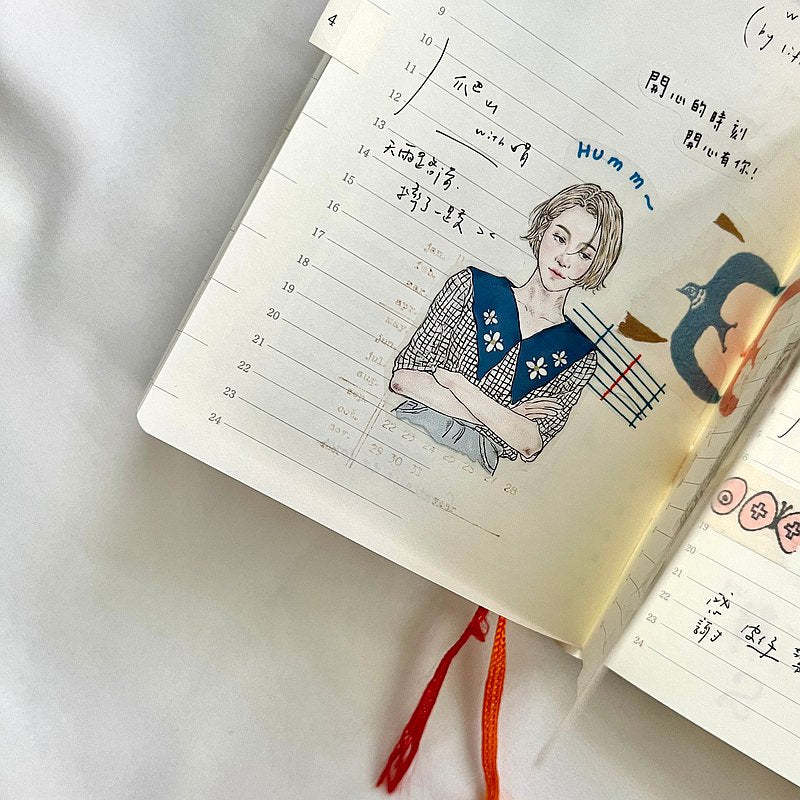 4
9
10
11
12
13
14
15
16
17
18
19
20
21
22
23
24
(by
爬山
with
天雨路滑.
摔了一跤 ><
開心的時刻
開心有你!
Humm~
jan.
feb.
mar.
apr.
may.
jun.
jul.
aug.
sep.
oct.
nov.
22 23 24 25 26 27 28
29 30 31
19
20
21
22
23
24
感謝